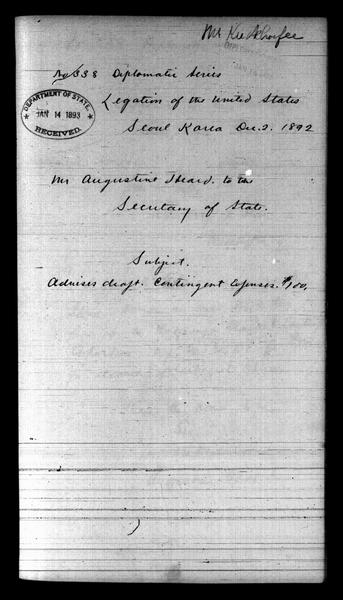 No 338 Diplomatic Series
DEPARTMENT OF STATE,
JAN 14 1893
RECEIVED.
Legation of the United States
Seoul Korea Dec. 2. 1892
Mr Augustine Heard. to the
Secretary of State.
Subject.
Advises draft. Contingent Expenses. $100.